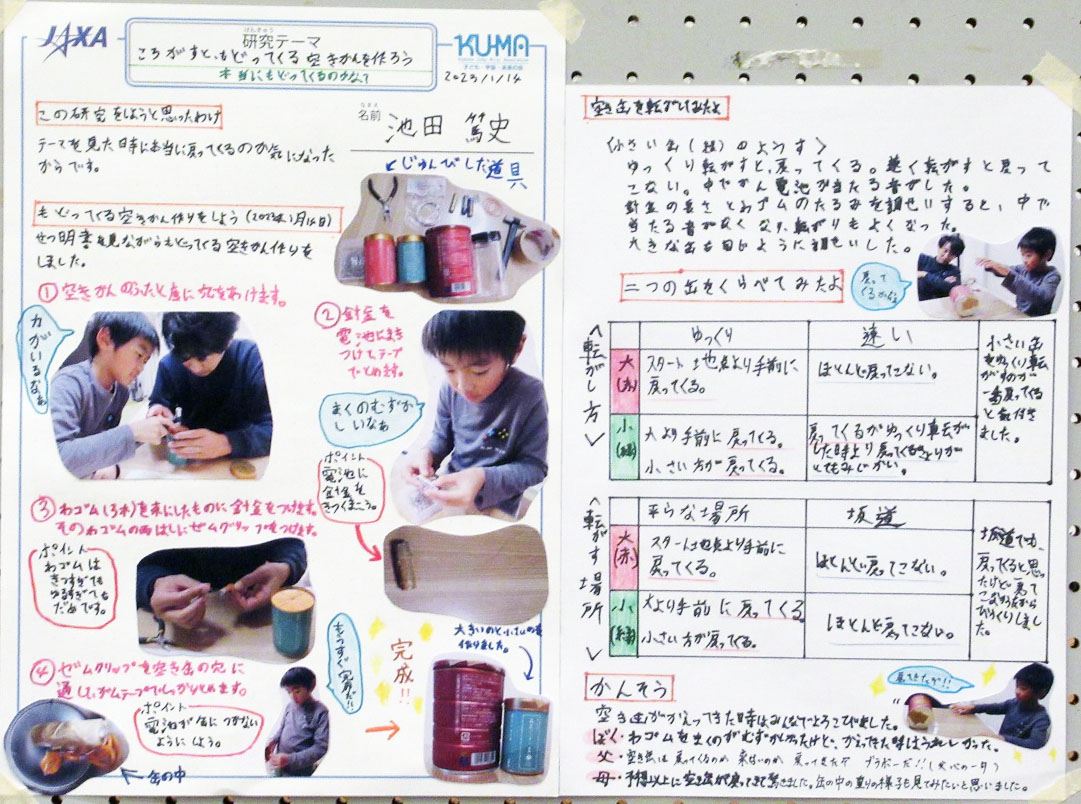 JAXA
けんきゅう
研究テーマ
ころがすと、もどってくる空きかんを作ろう
本当にもどってくるのかな？
KU-MA
子ども・宇宙・未来の会
2023/1/14
この研究をしようと思ったわけ
なまえ
名前
池田 篤史
テーマを見た時に本当に戻ってくるのか気になった
からです。
じゅんびした道具
もどってくる空きかん作りをしよう(2023年1月14日)
せつ明書を見ながらもどってくる空きかん作りを
しました。
①空きかんのふたと底に穴をあけます。
力がいるなぁ
②針金を
電池にまき
つけて、テープ
でとめます。
まくのむずか
しいなぁ
ポイント
電池に
針金を
きつくまこう。
③わゴム(3本)を束にしたものに針金をつけます。
そのわゴムの両はしにぜムクリップをつけます。
ポイント
わゴムは
きつすぎても
ゆるすぎても
だめです。
④ゼムクリップを空き缶の穴に
通し、ガムテープでしっかりとめます。
ポイント
電池が缶につかない
ようにしよう。
缶の中
もうすぐ完成だ!!
完成!!
大きいのと小さいの
作りました。
空き缶を転がしてみたよ
〈小さい缶(緑)のようす〉
ゆっくり転がすと、戻ってくる。速く転がすと戻って
こない。中でかん電池が当たる音がした。
針金の長さとわゴムのたるみを調せいすると、中で
当たる音がなくなり、転がりもよくなった。
大きな缶も同じように調せいした。
戻って
くるかな
二つの缶をくらべてみたよ
〈転がし方〉
ゆっくり
速い
大(赤)
スタート地点より手前に
戻ってくる。
ほとんど戻ってこない。
小(緑)
大より手前に戻ってくる。
小さい方が戻ってくる。
戻ってくるがゆっくり転が
した時より戻ってくるきょりが
とてもみじかい。
小さい缶
をゆっくり転
がすのが
一番戻ってくる
と気付き
ました。
〈転がす場所〉
平らな場所
坂道
大(赤)
スタート地点より手前に
戻ってくる。
ほとんど戻ってこない。
小(緑)
大より手前に戻ってくる。
小さい方が戻ってくる。
ほとんど戻ってこない。
坂道でも、
戻ってくると思っ
たけど戻って
こなかったから
びっくりしま
した。
かんそう
戻ってきたぞ!!
空き缶がかえってきた時はみんなでよろこびました。
ぼく・わゴムをまくのがむずかしかったけど、かえってきた時はうれしかった。
父・空き缶は戻ってくるのか 来ないのか 戻ってきた ブラボーだ!!
母・予想以上に空き缶が戻ってきて驚きました。缶の中の重りの様子も見てみたいと思いました。